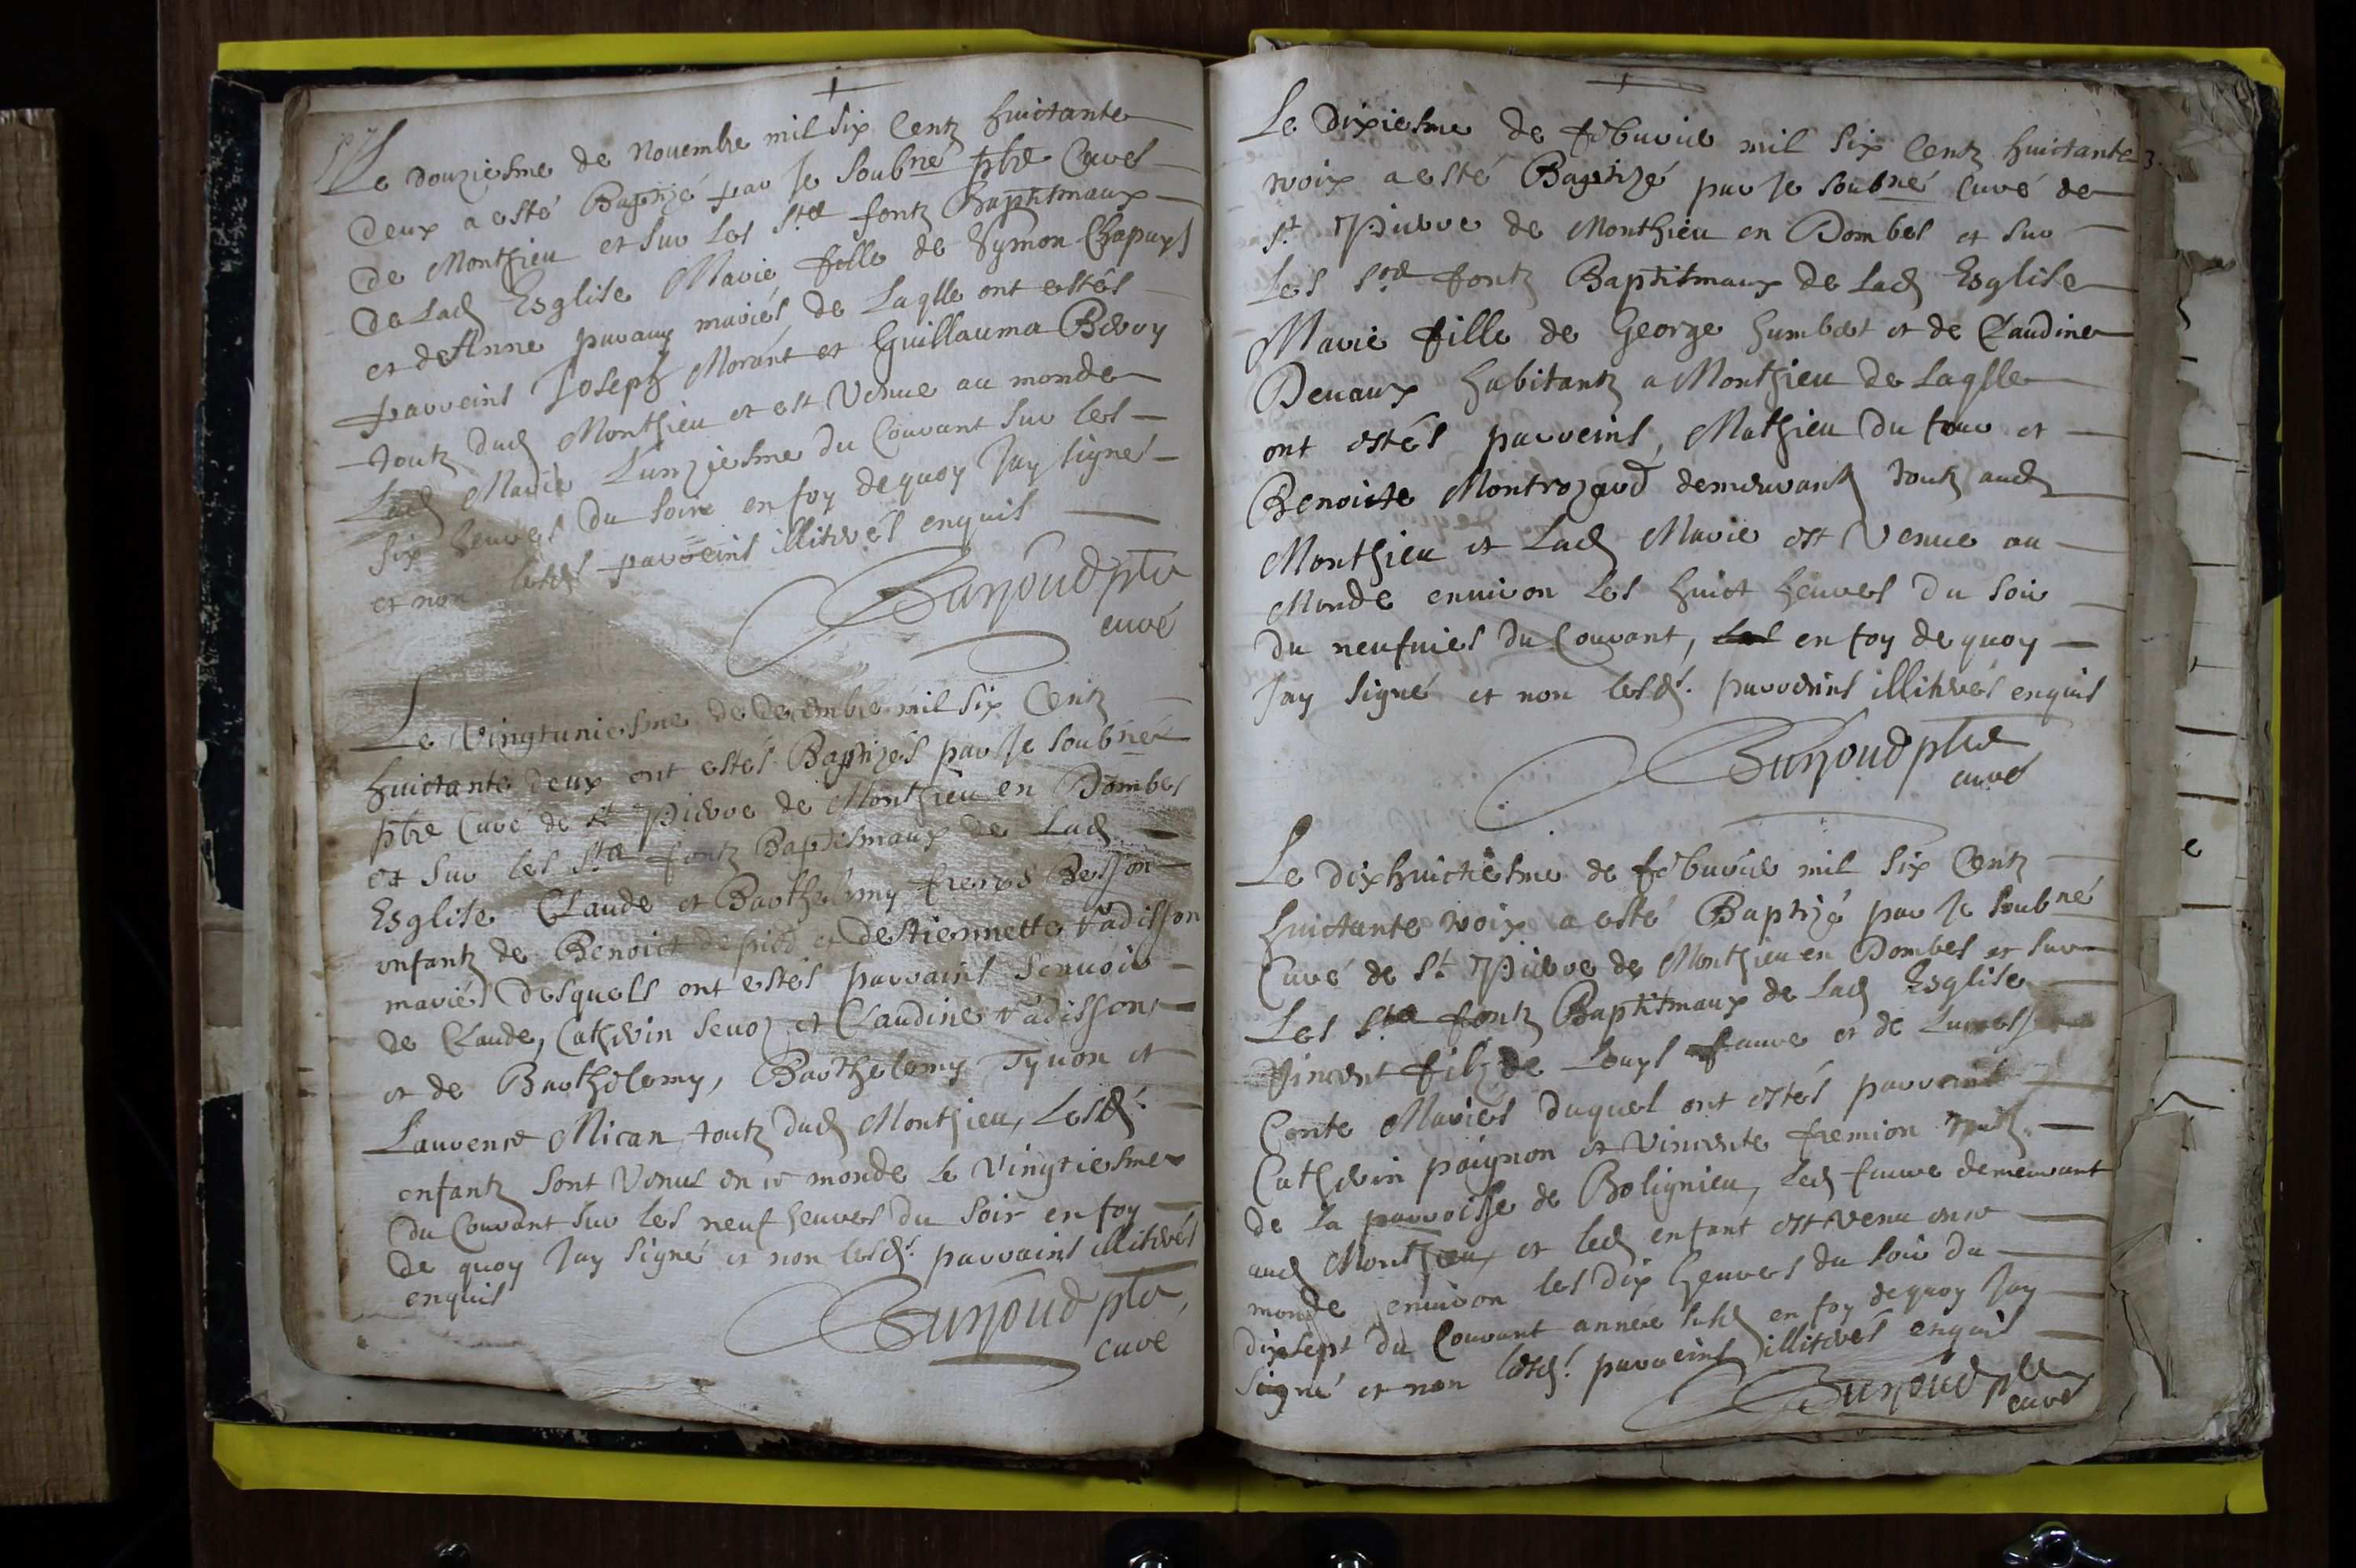 Le douziesme de Nouembre mil six Centz huictante
deux a esté Baptizé par Je Soubné ptre Curé
de Monthieu et sur les Stes fontz Baptitmaux
de Lad Esglise Marie fille de Symon Chapuys
et de Anne paraux mariés de Laqlle ont estés
parreins Joseph Morant et Guillauma Beroy
toutz dud Monthieu et est Venue au monde
Lad Marie Lunziesme du Courant sur les
six heures du soire en foy de quoy Jay signé
et non lesds parreins illiterés enquis
Burjoud ptre
curé
Le Vingtuniesme de decembre mil six Centz
huictante deux ont estés Baptizés par Je soubné
ptre Curé de St Pierre de Monthieu en Dombes
et sur les Stes fontz Baptismaux de Lad
Esglise Claude et Barthelemy freres Besson
enfantz de Benoict et de Stiennette Vadisson
mariés desquels ont estés parrains scauoir
de Claude, Catherin Seuoz et Claudine Vadisson
et de Barthelemy, Barthelemy Tyuon et
Laurence Mican toutz dud Monthieu, Lesds
enfantz sont Venus en ce monde le Vingtiesme
du Courant sur les neuf heures du soir en foy
de quoy Jay signé et non lesds. parrains illiterés
enquis
Burjoud ptre
curé
Le dixiesme de feburier mil six Centz huictante 3.
troix a esté Baptizé par Je soubné Curé de
St Pierre de Monthieu en Dombes et sur
Les Stes fontz Baptitmaux de Lad Esglise
Marie fille de George humbert et de Claudine
Deuaux habitantz a Monthieu de Laqlle
ont estés parreins, Mathieu du four et
Benoicte Montrozard demeurantz toutz aud
Monthieu et Lad Marie est Venue au
Monde enuiron Les huict heures du soir
du neufuies du Courant, en foy de quoy
Jay signé et non lesds. parreins illiterés enquis
Burjoud ptre
curé
Le dixhuictiesme de feburier mil six Centz
huictante troix a esté Baptizé par Je soubné
Curé de St Pierre de Monthieu en Dombes et sur
Les Stes fontz Baptitmaux de Lad Esglise
Vincent filz de Louys faure et de
Conte Mariés duquel ont estés parreins
Catherin paignon et Vincente fremion toutz
de la parroisse de Bolignieu, Led faure demeurant
aud Monthieu et led enfant est venu en ce
monde enuiron les dix heures du soir du
dixsept du Courant année susd en foy de quoy Jay
signé et non lesds. parreins illiterés enquis
Burjoud ptre
curé